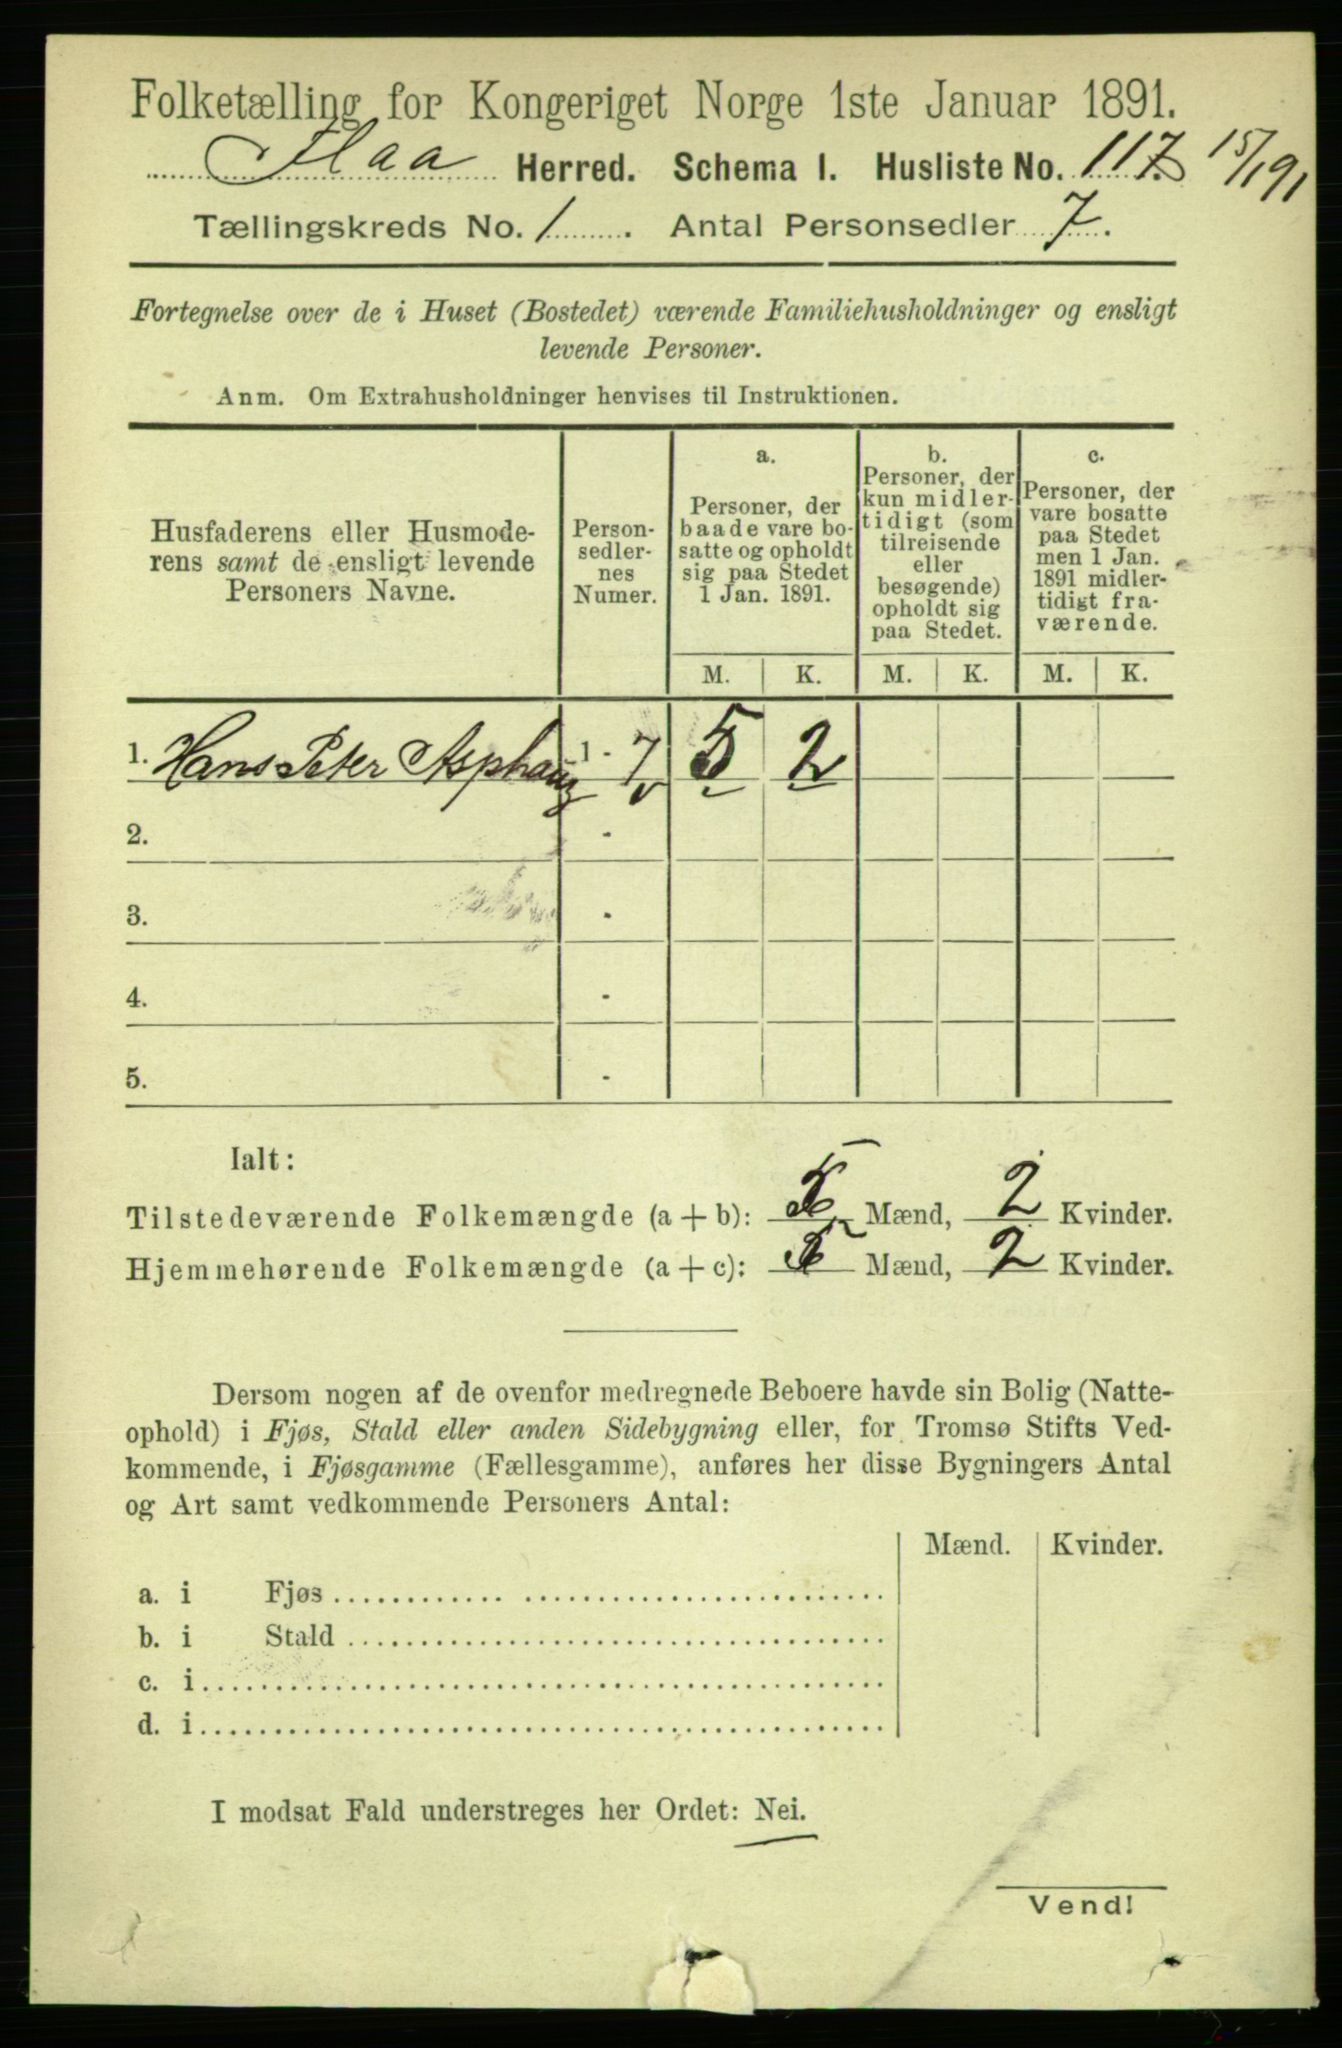 Folketælling for Kongeriget Norge 1ste Januar 1891.
Flaa Herred. Schema 1. Husliste No. 117. 15/1 91
Tællingskreds No. 1. Antal Personsedler 7.
Fortegnelse over de i Huset (Bostedet) værende Familiehusholdninger og ensligt
levende Personer.
Anm. Om Extrahusholdninger henvises til Instruktionen.
Husfaderens eller Husmode-
rens samt de ensligt levende
Personers Navne.
Person-
sedler-
nes
Numer.
a.
Personer, der
baade vare bo-
satte og opholdt
sig paa Stedet
1 Jan. 1891.
b.
Personer, der
kun midler-
tidigt (som
tilreisende
eller
besøgende)
opholdt sig
paa Stedet.
c.
Personer, der
vare bosatte
paa Stedet
men 1 Jan.
1891 midler-
tidigt fra-
værende.
M. K. M. K. M. K.
1. Hans Peter Asphaug 1 - 7 5 2
2. -
3. -
4. -
5. -
Ialt:
Tilstedeværende Folkemængde (a + b): 5 Mænd, 2 Kvinder.
Hjemmehørende Folkemængde (a + c): 5 Mænd, 2 Kvinder.
Dersom nogen af de ovenfor medregnede Beboere havde sin Bolig (Natte-
ophold) i Fjøs, Stald eller anden Sidebygning eller, for Tromsø Stifts Ved-
kommende, i Fjøsgamme (Fællesgamme), anføres her disse Bygningers Antal
og Art samt vedkommende Personers Antal:
Mænd. Kvinder.
a. i Fjøs
b. i Stald
c. i
d. i
I modsat Fald understreges her Ordet: Nei.
Vend!